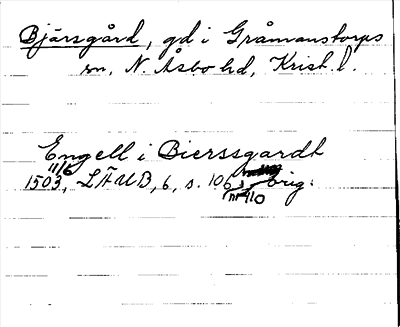 Bjärsgård, gd i Gråmanstorps
sn, N. Åsbo hd, Krist. l.
Engell i Bierssgardt
11/6
1503, LÄUB, 6, s. 106, orig.
nr 410